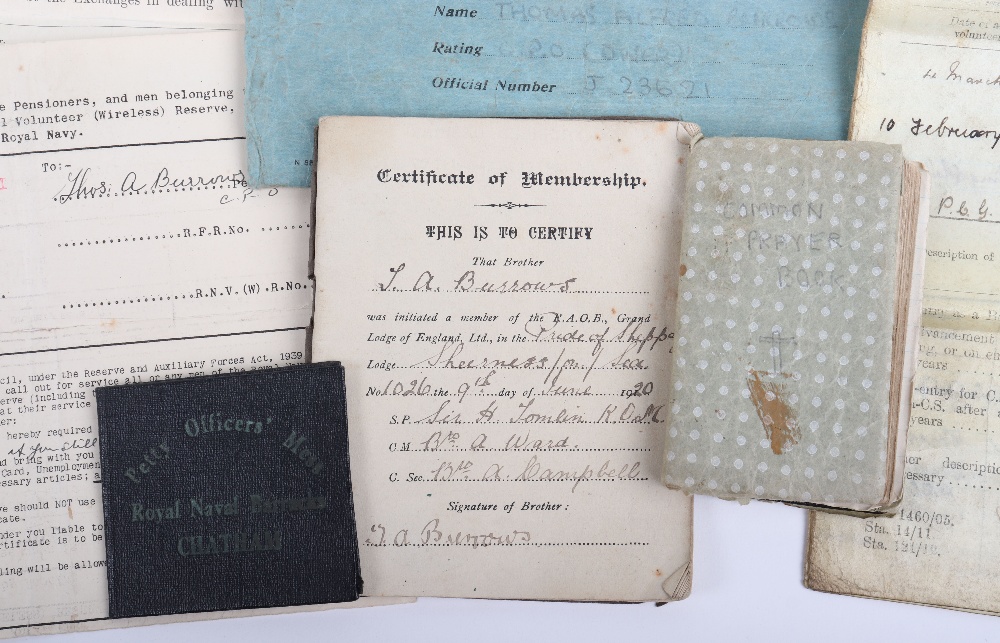 the Exchanges in dealing wit
e Pensioners, and men belonging
l Volunteer (Wireless) Reserve,
Royal Navy.
To:-
Thos. A Burrows
C. P. O
R.F.R.No.
R.N.V.(W).R.No.
cil, under the Reserve and Auxiliary Forces Act, 1939
call out for service all or any men of the
erve (including
at their service
er:
hereby required
if you still
nd bring with you
Card, Unemployment
ssary articles;
ve should NOT use
cate.
nder you liable to
ertificate is to be
ling will be allowe
Name THOMAS ALFRED BURROWS
Rating C.P.O.
Official Number J 23621
Certificate of Membership.
THIS IS TO CERTIFY
That Brother
T. A. Burrows
was initiated a member of the R.A.O.B., Grand
Lodge of England, Ltd., in the Pride of Sheppey
Lodge Sheerness on Sea
No 1026 the 9th day of June 1920
S.P. Sir H. Tomlin R.O.M.
C.M. Bro A Ward.
C. Sec. Bro A Campbell
Signature of Brother:
T A Burrows
Petty Officers' Mess
Royal Naval Barracks
CHATHAM
COMMON
PRAYER
BOOK
Date of
volunteer
4 March
10 February
P.C.G.
escription of
ntry as a
dvancement
ng, or on en
years
-entry for C.
n-C.S. after
years
er descripti
essary
1460/05.
Sta. 14/11.
Sta. 121/19.